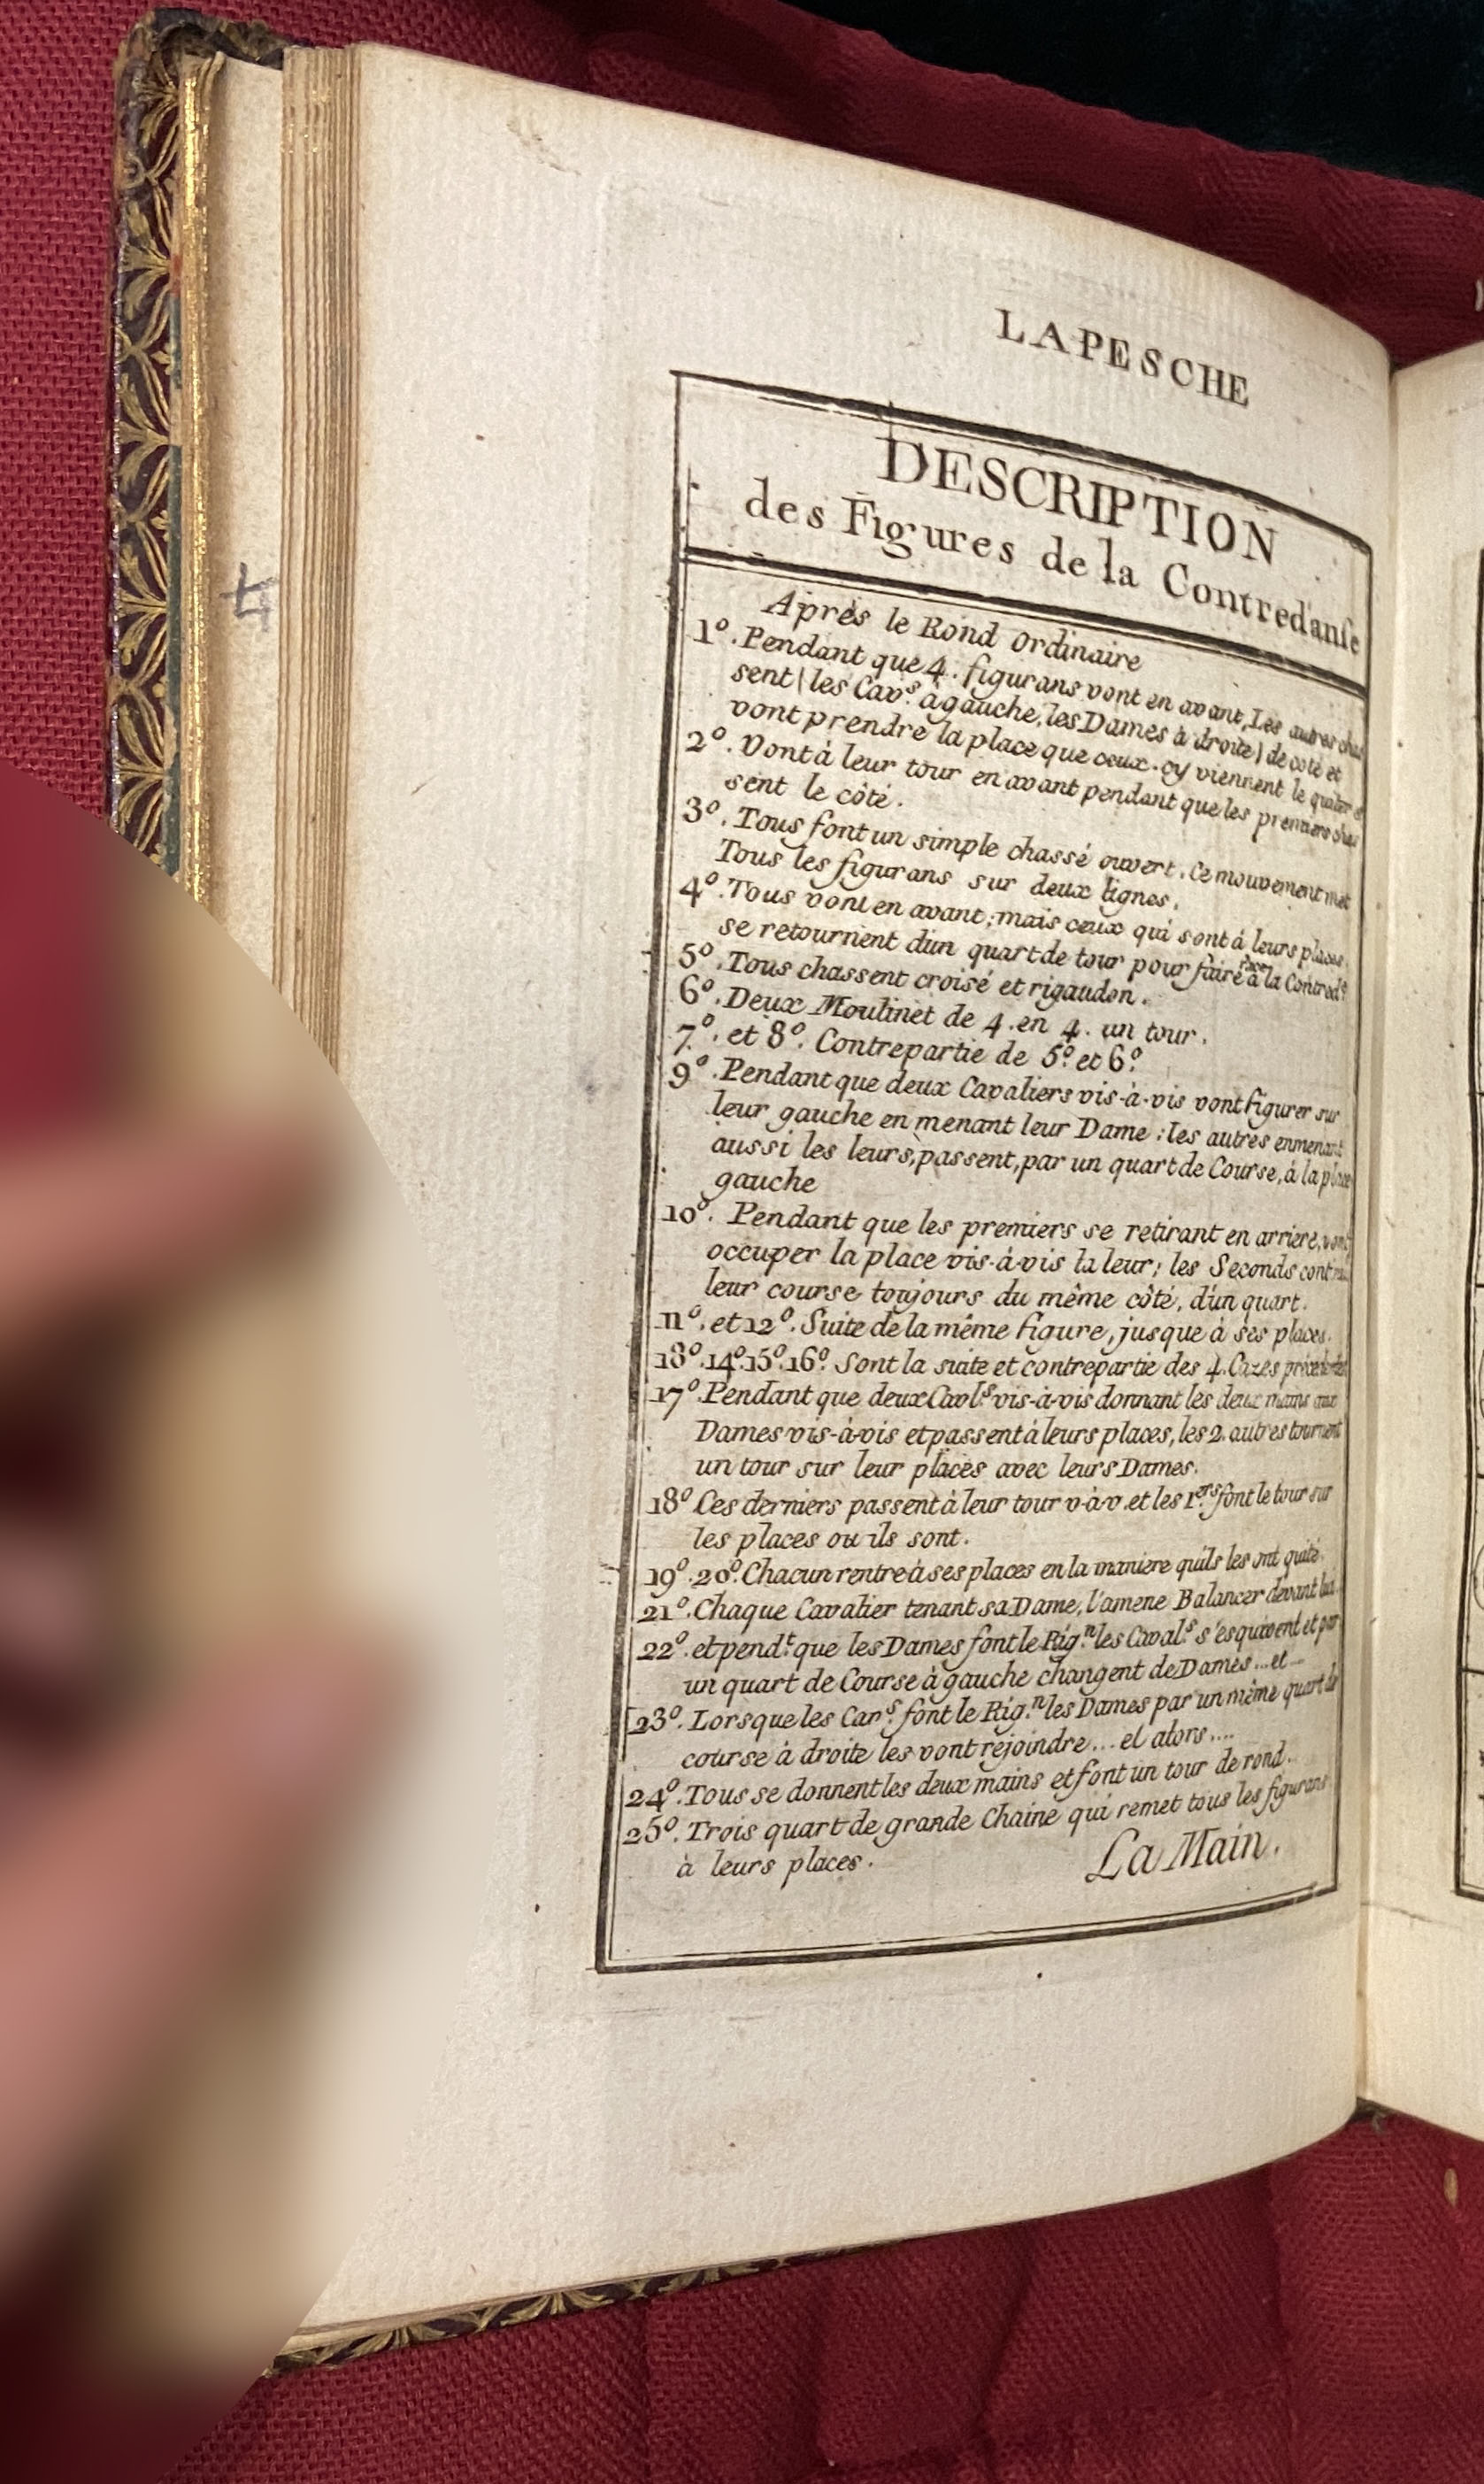 LA PESCHE
DESCRIPTION
des Figures de la Contredanse
Après le Rond Ordinaire
1º. Pendant que 4. figurans vont en avant, Les autres chas
sent (les Cavs. à gauche, les Dames à droite) de coté et
vont prendre la place que ceux-cy viennent le
2º. Vont à leur tour en avant pendant que les premiers chas
sent le côté.
3º. Tous font un simple chassé ouvert. Ce mouvement met
Tous les figurans sur deux lignes.
4º. Tous vont en avant; mais ceux qui sont à leurs places
se retournent d'un quart de tour pour faire face à la Contred.
5º. Tous chassent croisé et rigaudon.
6º. Deux Moulinet de 4. en 4. un tour.
7º. et 8º. Contrepartie de 5º. et 6º.
9º. Pendant que deux Cavaliers vis-à-vis vont figurer sur
leur gauche en menant leur Dame: les autres enmenant
aussi les leurs, passent, par un quart de Course, à la place
gauche
10º. Pendant que les premiers se retirant en arriere, vont
occuper la place vis-à-vis la leur; les Seconds
leur course toujours du même côté, d'un quart.
11º. et 12º. Suite de la même figure, jusque à ses places.
13º. 14º. 15º. 16º. Sont la suite et contrepartie des 4. Cazes
17º. Pendant que deux Cavls. vis-à-vis donnant les deux mains aux
Dames vis-à-vis et passent à leurs places, les 2. autres tournent
un tour sur leur places avec leurs Dames.
18º Ces derniers passent à leur tour v-à-v. et les 1ers. font le tour sur
les places ou ils sont.
19º. 20º. Chacun rentre à ses places en la maniere qu'ils les ont quité.
21º. Chaque Cavalier tenant sa Dame, l'amene Balancer devant lui.
22º. et pendt. que les Dames font le Rign. les Cavals. s'esquivent et par
un quart de Course à gauche changent de Dames... et...
23º. Lorsque les Cars. font le Rign. les Dames par un même quart de
course à droite les vont rejoindre... et alors....
24º. Tous se donnent les deux mains et font un tour de rond.
25º. Trois quart de grande Chaine qui remet tous les figurans
à leurs places. La Main.